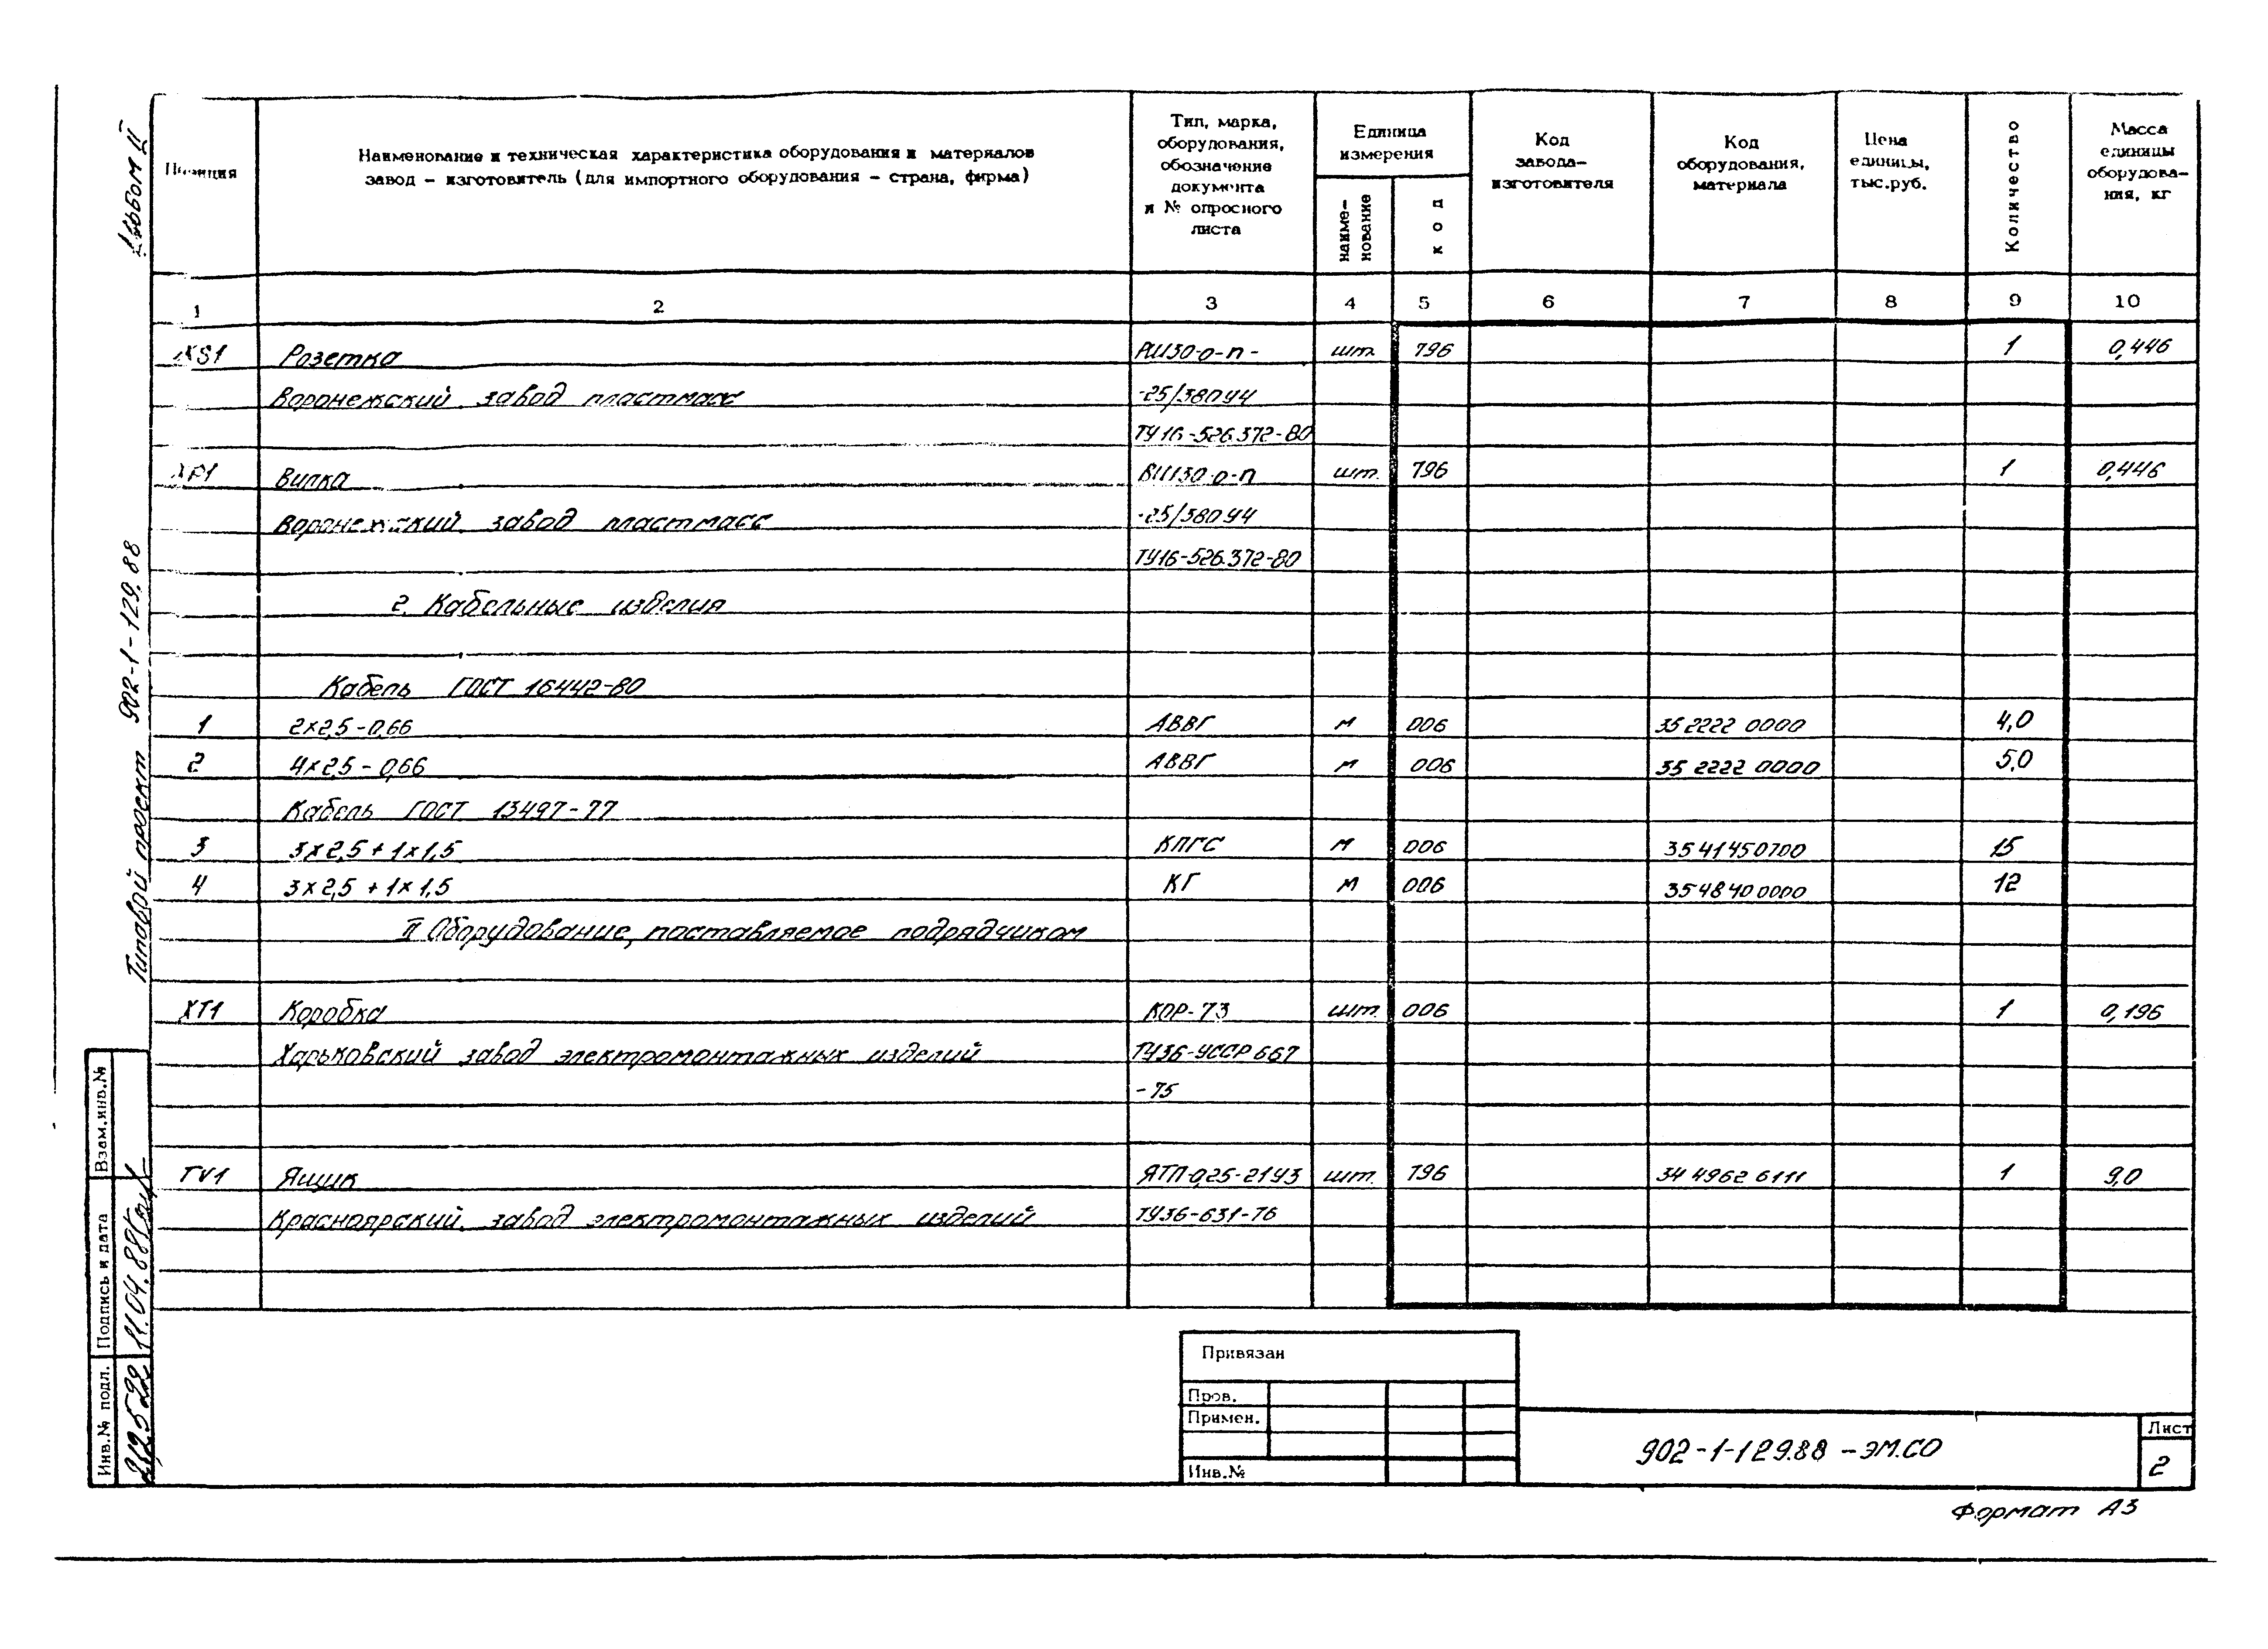 Альбом II
Типовой проект 902-1-129.88
Позиция
Наименование и техническая характеристика оборудования и материалов
завод - изготовитель (для импортного оборудования - страна, фирма)
Тип, марка,
оборудования,
обозначение
документа
и № опросного
листа
Единица
измерения
наиме-
нование
код
Код
завода-
изготовителя
Код
оборудования,
материала
Цена
единицы,
тыс.руб.
Количество
Масса
единицы
оборудова-
ния, кг
1 2 3 4 5 6 7 8 9 10
XS1 Розетка РШ30-0-П- шт. 796 1 0,446
Воронежский завод пластмасс -25/380У4
ТУ16-526.372-80
XP1 Вилка ВШ30-0-П шт. 796 1 0,446
Воронежский завод пластмасс -25/380У4
ТУ16-526.372-80
2. Кабельные изделия
Кабель ГОСТ 16442-80
1 2×2,5-0,66 АВВГ м 006 35 2222 0000 4,0
2 4×2,5-0,66 АВВГ м 006 35 2222 0000 5,0
Кабель ГОСТ 13497-77
3 3×2,5+1×1,5 КПГС м 006 35 4145 0700 15
4 3×2,5+1×1,5 КГ м 006 35 4840 0000 12
II Оборудование, поставляемое подрядчиком
XT1 Коробка КОР-73 шт. 006 1 0,196
Харьковский завод электромонтажных изделий ТУ36-УССР 667
-75
TV1 Ящик ЯТП-0,25-21У3 шт. 796 34 4962 6111 1 9,0
Красноярский завод электромонтажных изделий ТУ36-631-76
Взам.инв.№
Подпись и дата
11.04.88
Инв.№ подл.
Привязан
Пров.
Примен.
Инв.№
902-1-129.88 -ЭМ.СО
Лист
2
Формат А3